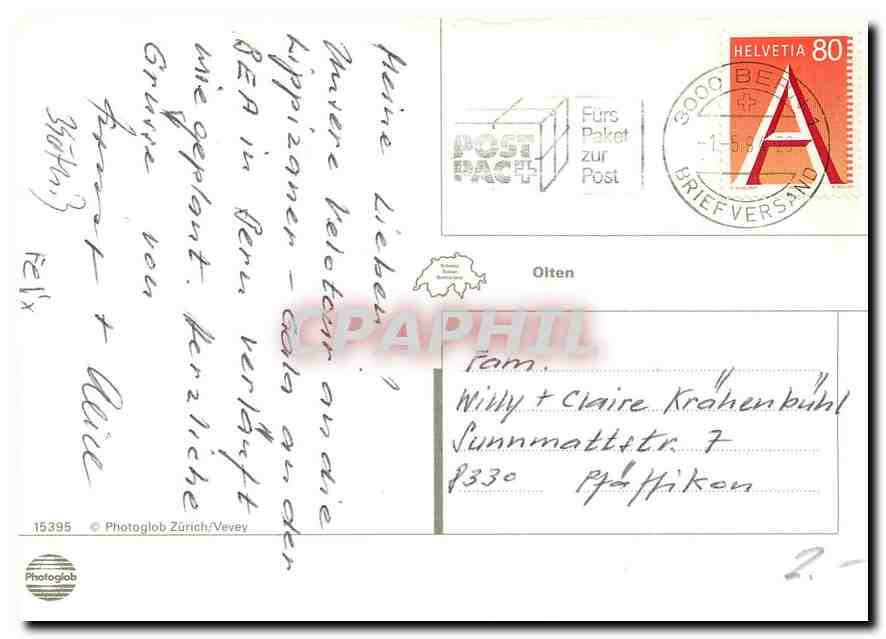 Meine Lieben!
Unsere Velotour an die
Lippizaner-Gala an der
BEA in Bern verläuft
wie geplant. Herzliche
Grüsse von
Ernst + Alice
Felix
HELVETIA 80
3000 BERN
BRIEFVERSAND
POST
PAC
Fürs
Paket
zur
Post
Schweiz
Suisse
Switzerland
Olten
CPAPHIL
Fam.
Willy + Claire Krähenbühl
Sunnmattstr. 7
8330 Pfäffikon
15395 © Photoglob Zürich/Vevey
Photoglob
2.-